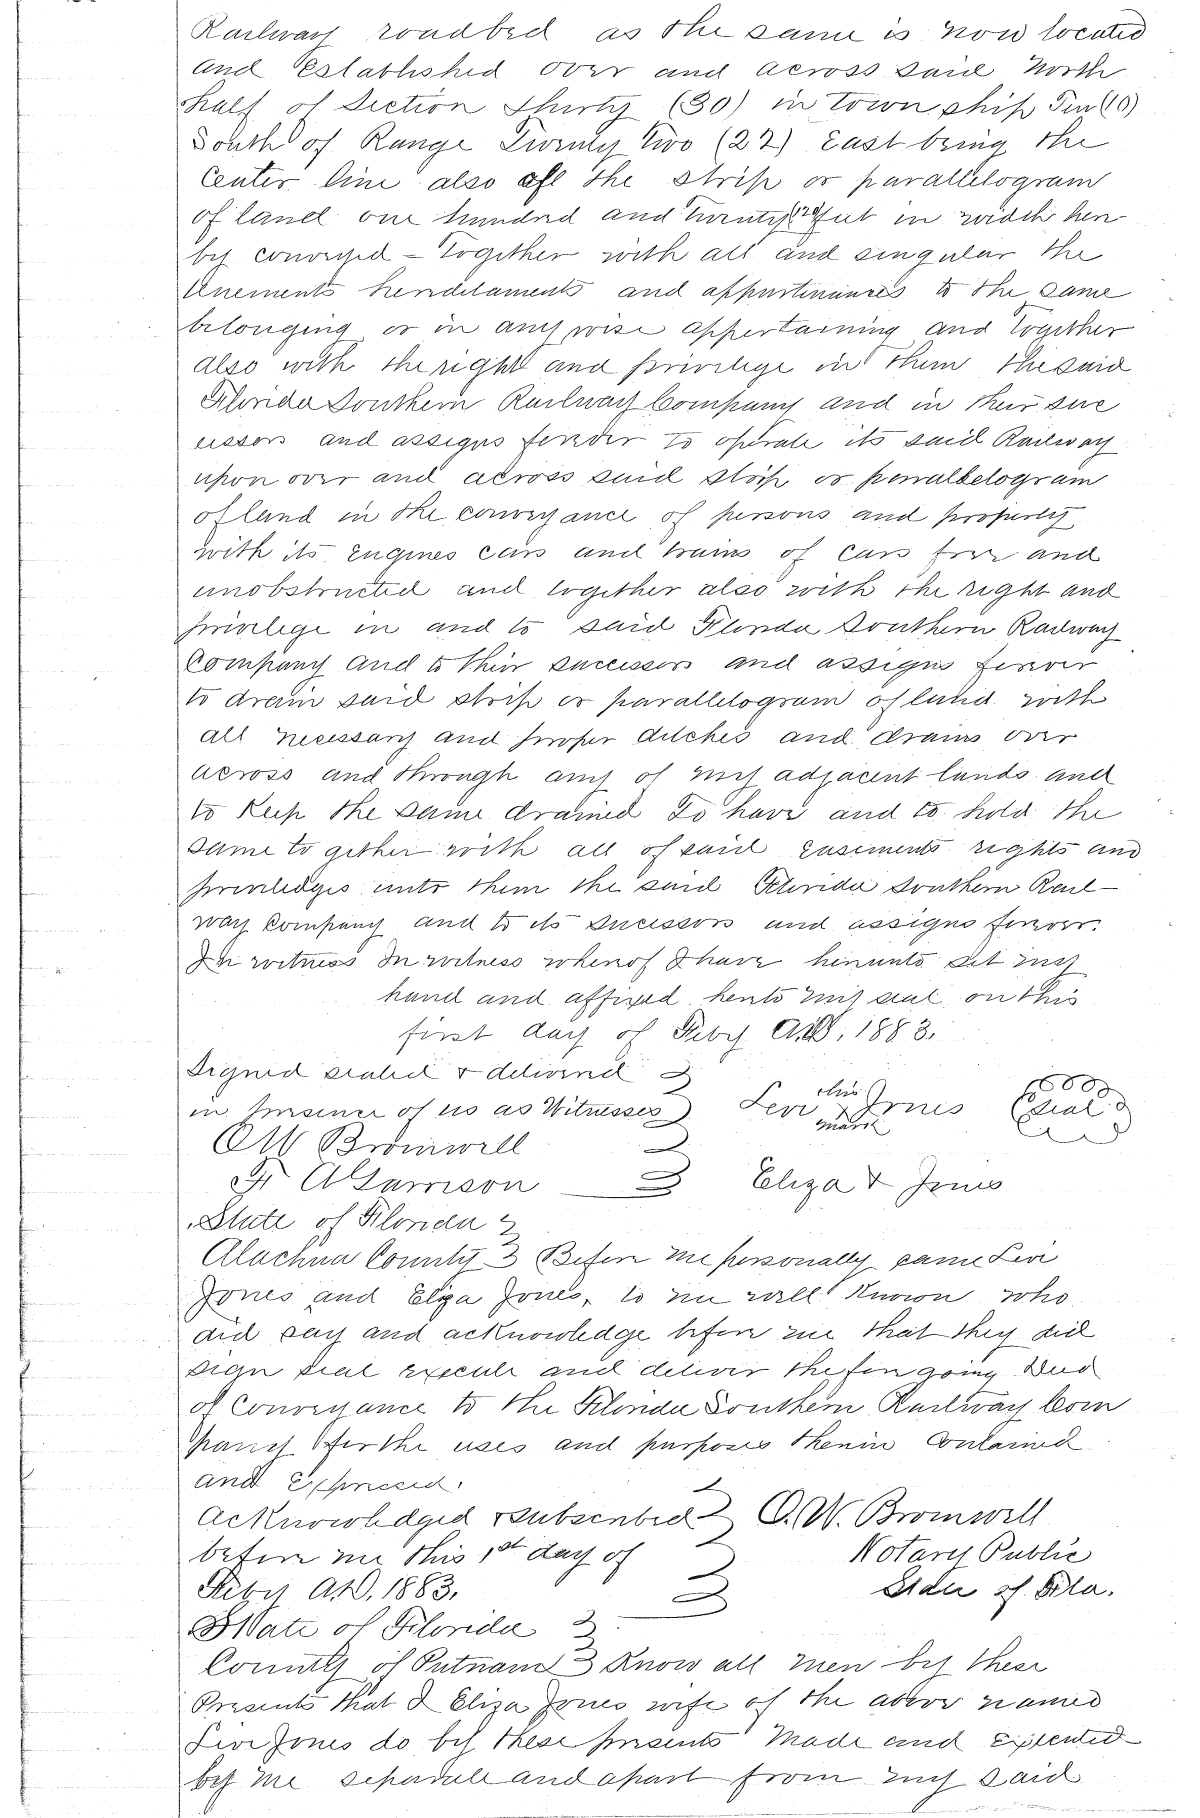 Railway roadbed as the same is now located
and Established over and across said North
half of Section Thirty (30) in town ship Ten (10)
South of Range Twenty two (22) East being the
Center line also of the strip or parallelogram
of land one hundred and twenty (120) feet in width here
by conveyed - together with all and singular the
tenements hereditaments and appurtinances to the same
belonging or in any wise appertaining and together
also with the right and privilege in them the said
Florida Southern Railway Company and in their suc
cessors and assigns forever to operate its said Railway
upon over and across said strip or parallelogram
of land in the conveyance of persons and property
with its Engines cars and trains of cars free and
unobstructed and together also with the right and
privilege in and to said Florida Southern Railway
Company and to their successors and assigns forever
to drain said strip or parallelogram of land with
all necessary and proper ditches and drains over
across and through any of my adjacent lands and
to keep the same drained To have and to hold the
same to gether with all of said easements rights and
priviledges unto them the said Florida Southern Rail-
way Company and to its sucessors and assigns forever.
In witness In witness whereof I have hereunto set my
hand and affixed hereto my seal on this
first day of Feby A.D. 1883.
Signed sealed & delivered
in presence of us as Witnesses Levi his x mark Jones Seal
O W Bromwell
Fr A Garrison Eliza x Jones
State of Florida
Alachua County Before me personally came Levi
Jones and Eliza Jones, to me well known who
did say and acknowledge before me that they did
sign seal execute and deliver the fore going Deed
of Conveyance to the Florida Southern Railway Com
pany for the uses and purposes therein Contained
and Expressed.
Acknowledged & subscribed O. W. Bromwell
before me this 1st day of Notary Public
Feby A.D. 1883. State of Fla.
State of Florida
County of Putnam Know all men by these
Presents that I Eliza Jones wife of the above named
Levi Jones do by these presents Made and Executed
by me separate and apart from my said